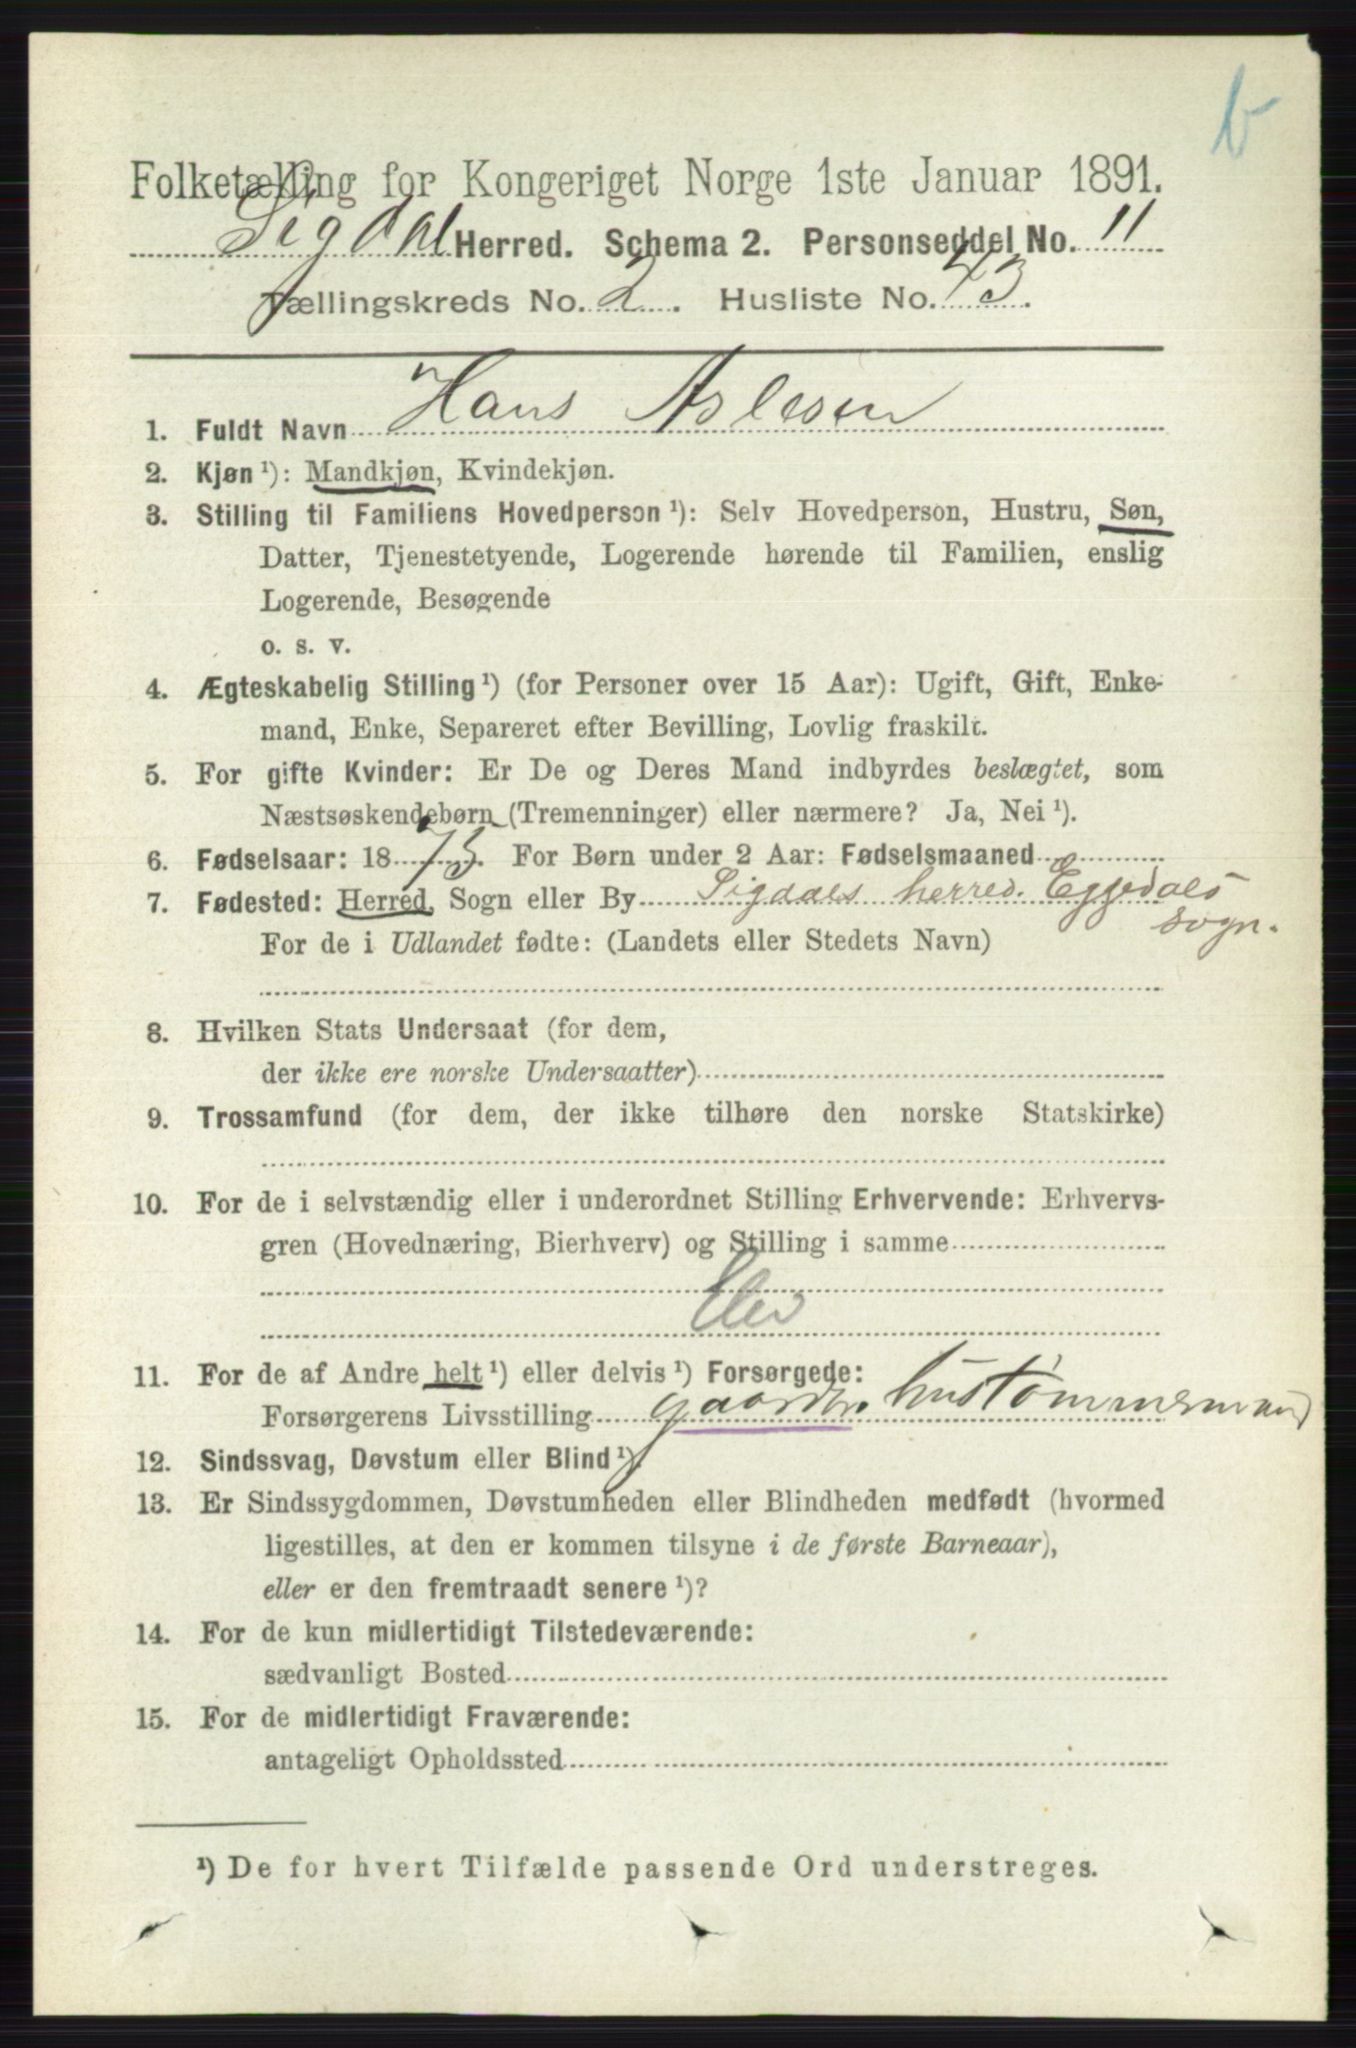 b
Folketælling for Kongeriget Norge 1ste Januar 1891.
Sigdal Herred. Schema 2. Personseddel No. 11
Tællingskreds No. 2. Husliste No. 43.
1. Fuldt Navn Hans Aslesen
2. Kjøn ¹): Mandkjøn, Kvindekjøn.
3. Stilling til Familiens Hovedperson ¹): Selv Hovedperson, Hustru, Søn,
Datter, Tjenestetyende, Logerende hørende til Familien, enslig
Logerende, Besøgende
o. s. v.
4. Ægteskabelig Stilling ¹) (for Personer over 15 Aar): Ugift, Gift, Enke-
mand, Enke, Separeret efter Bevilling, Lovlig fraskilt.
5. For gifte Kvinder: Er De og Deres Mand indbyrdes beslægtet, som
Næstsøskendebørn (Tremenninger) eller nærmere? Ja, Nei ¹).
6. Fødselsaar: 1875. For Børn under 2 Aar: Fødselsmaaned
7. Fødested: Herred, Sogn eller By Sigdals herred. Eggedals
sogn.
For de i Udlandet fødte: (Landets eller Stedets Navn)
8. Hvilken Stats Undersaat (for dem,
der ikke ere norske Undersaatter)
9. Trossamfund (for dem, der ikke tilhøre den norske Statskirke)
10. For de i selvstændig eller i underordnet Stilling Erhvervende: Erhvervs-
gren (Hovednæring, Bierhverv) og Stilling i samme
Elev
11. For de af Andre helt ¹) eller delvis ¹) Forsørgede:
Forsørgerens Livsstilling gaardbr. hustømmermand
12. Sindssvag, Døvstum eller Blind ¹).
13. Er Sindssygdommen, Døvstumheden eller Blindheden medfødt (hvormed
ligestilles, at den er kommen tilsyne i de første Barneaar),
eller er den fremtraadt senere ¹)?
14. For de kun midlertidigt Tilstedeværende:
sædvanligt Bosted
15. For de midlertidigt Fraværende:
antageligt Opholdssted
¹) De for hvert Tilfælde passende Ord understreges.